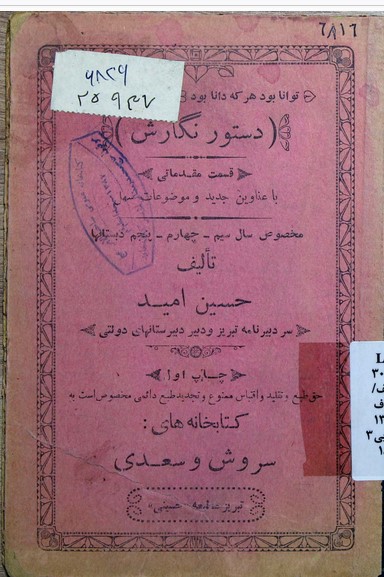 ٦٨١٦
توانا بود هر که دانا بود
(دستور نگارش)
قسمت مقدماتی
با عناوین جدید و موضوعات سهل
مخصوص سال سیم ـ چهارم ـ پنجم دبستانها
تألیف
حسین امید
سردبیر نامه تبریز و دبیر دبیرستانهای دولتی
چاپ اول
حق طبع و تقلید و اقتباس ممنوع و تجدید طبع دائمی مخصوص است به
کتابخانه های:
سروش و سعدی
تبریز مطبعه حسینی